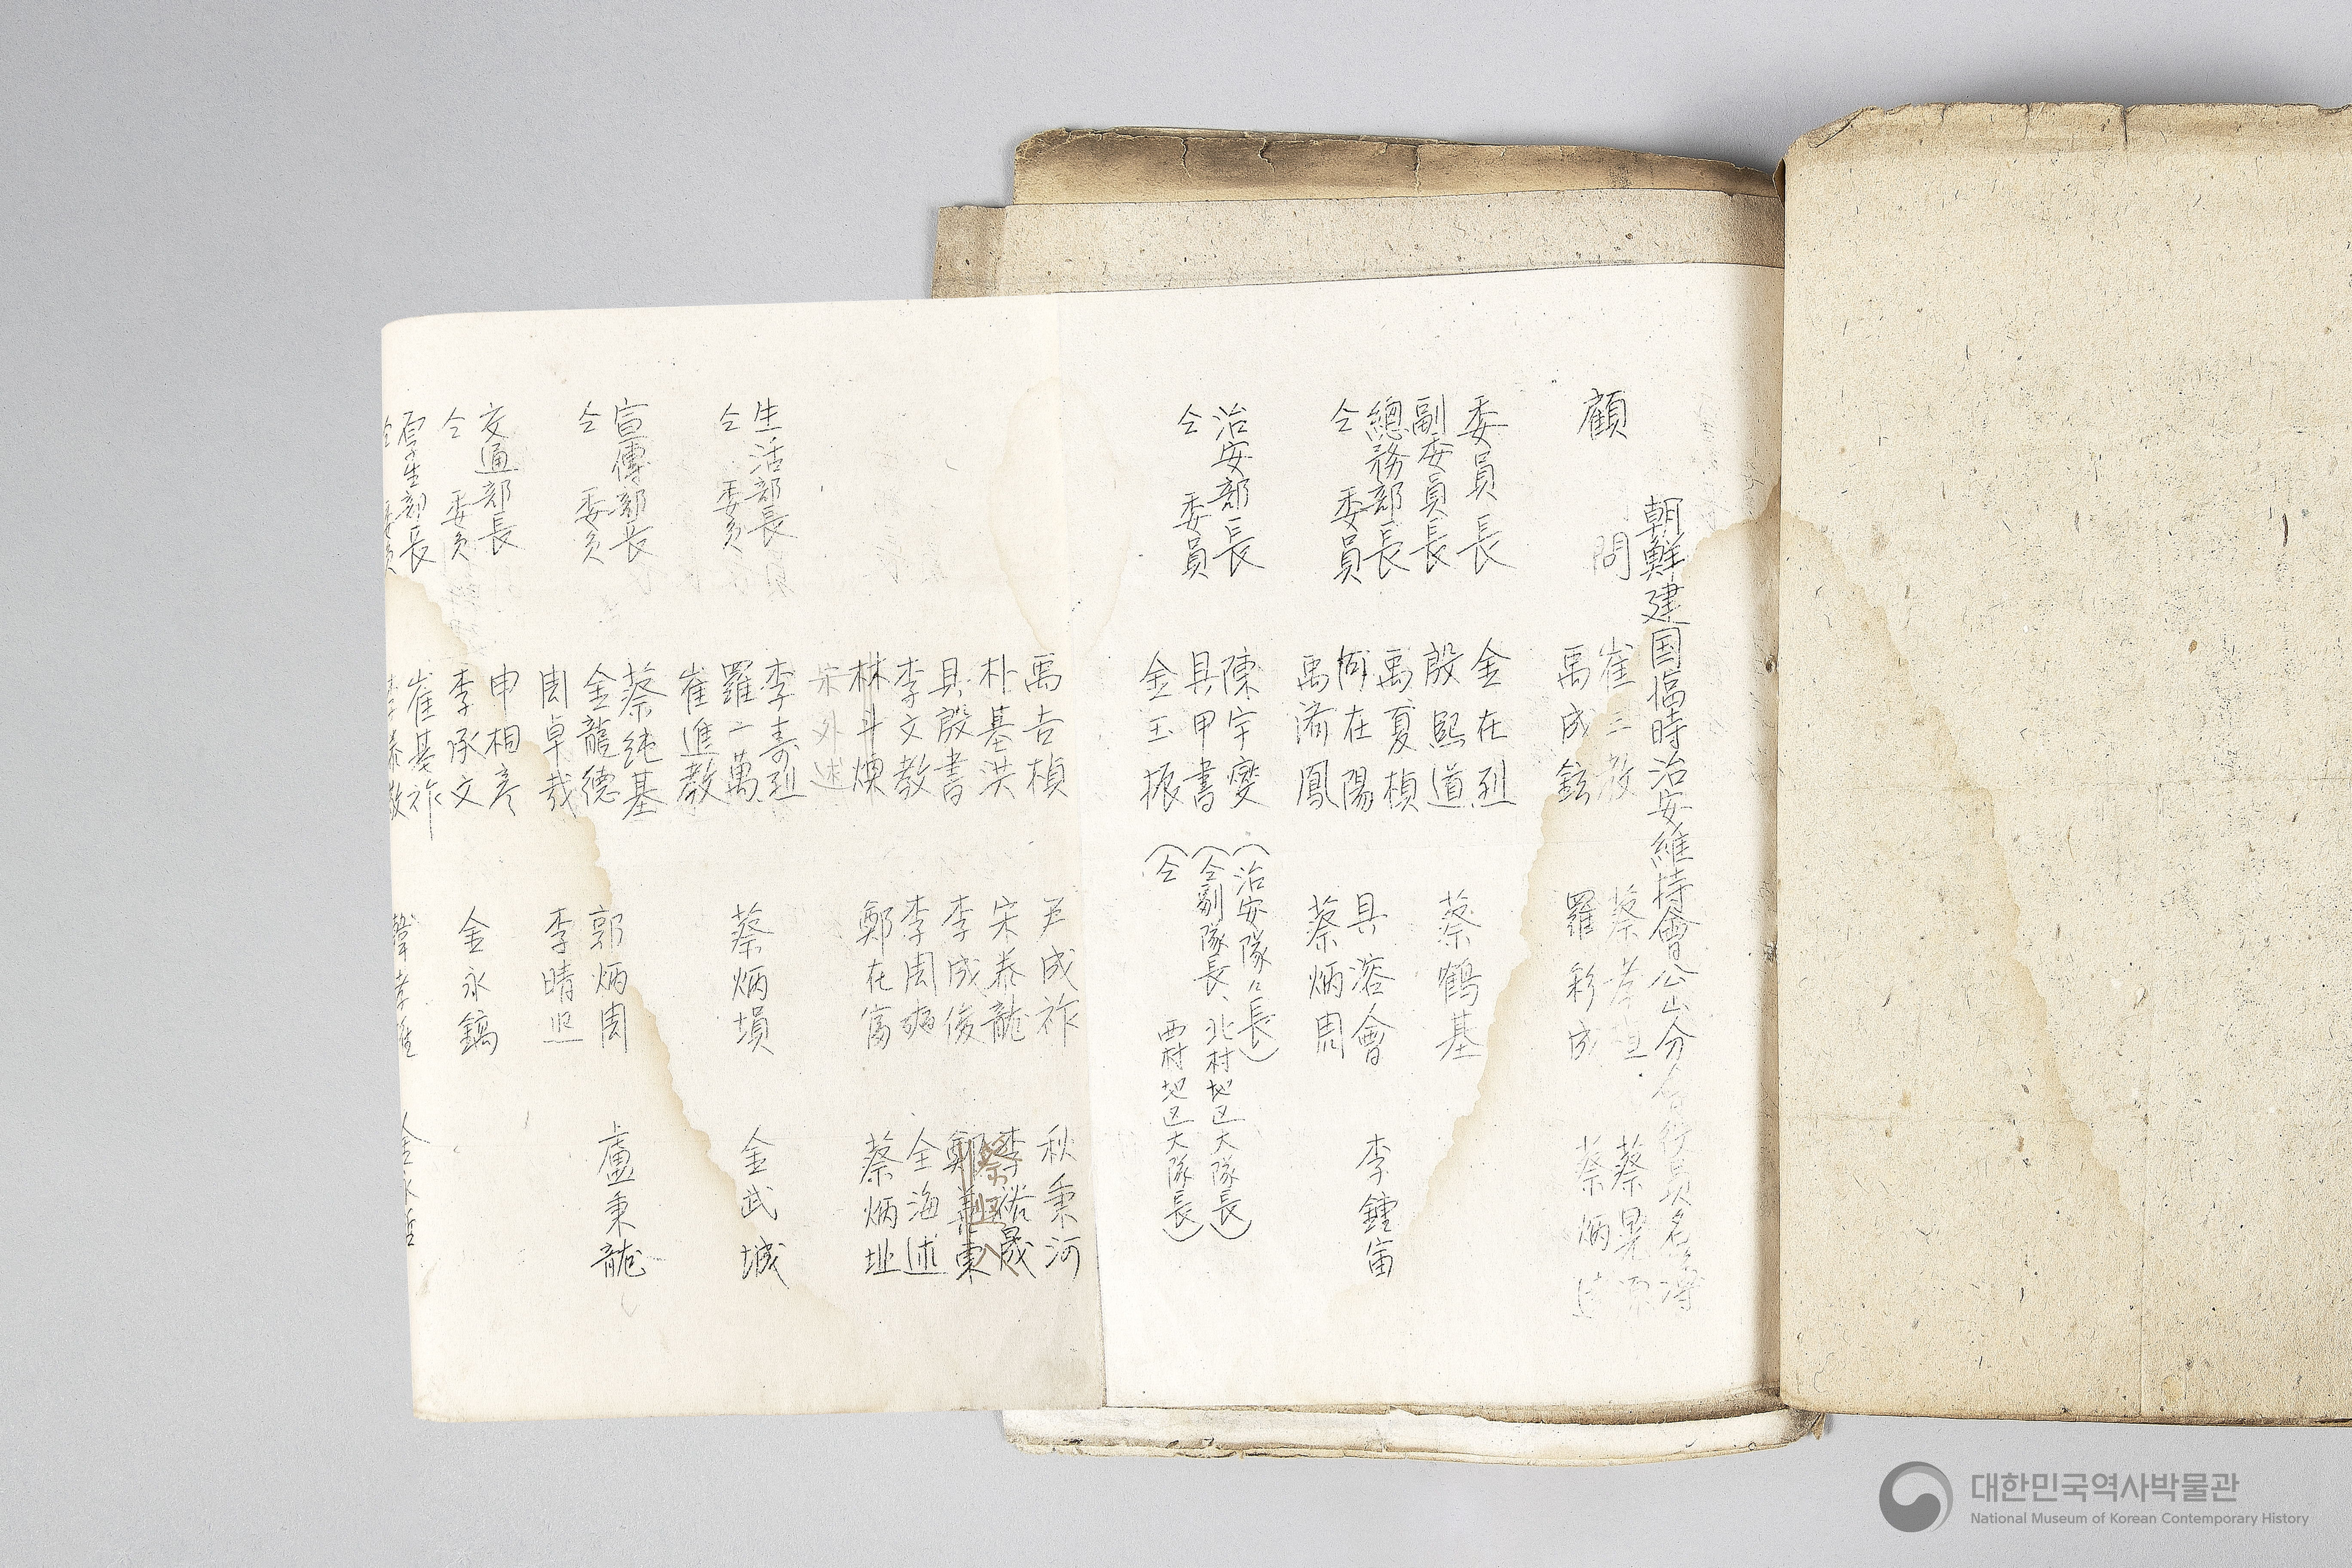 朝鮮建国臨時治安維持會公山分會行員名簿
顧問 崔三教
禹成鉉 羅彩成 蔡炳
委員長 金在烈
副委員長 殷熙道 蔡鶴基
總務部長 禹夏楨
仝 委員 何在陽 具溶會 李鍾宙
禹濟鳳 蔡炳周
治安部長 陳宇燮 (治安隊々長)
仝 委員 具甲書 (仝副隊長、北村地区大隊長)
金玉振 (仝 西村地区大隊長)
禹吉楨 尹成祚 秋秉河
朴基洪 宋泰龍 李裕晟
具殷書 李成俊 鄭義東
李文教 李周 全海述
林斗煥 鄭在富 蔡炳址
宋外述
生活部長 李壽烈
仝 委員 羅二萬 蔡炳塤 金武城
崔進教
宣傳部長 蔡純基
仝 委員 金龍德 郭炳周 盧秉龍
周卓哉 李晴
交通部長 申相彦
仝 委員 李承文 金永鎬
厚生部長 崔基祚
仝 委員
대한민국역사박물관
National Museum of Korean Contemporary History